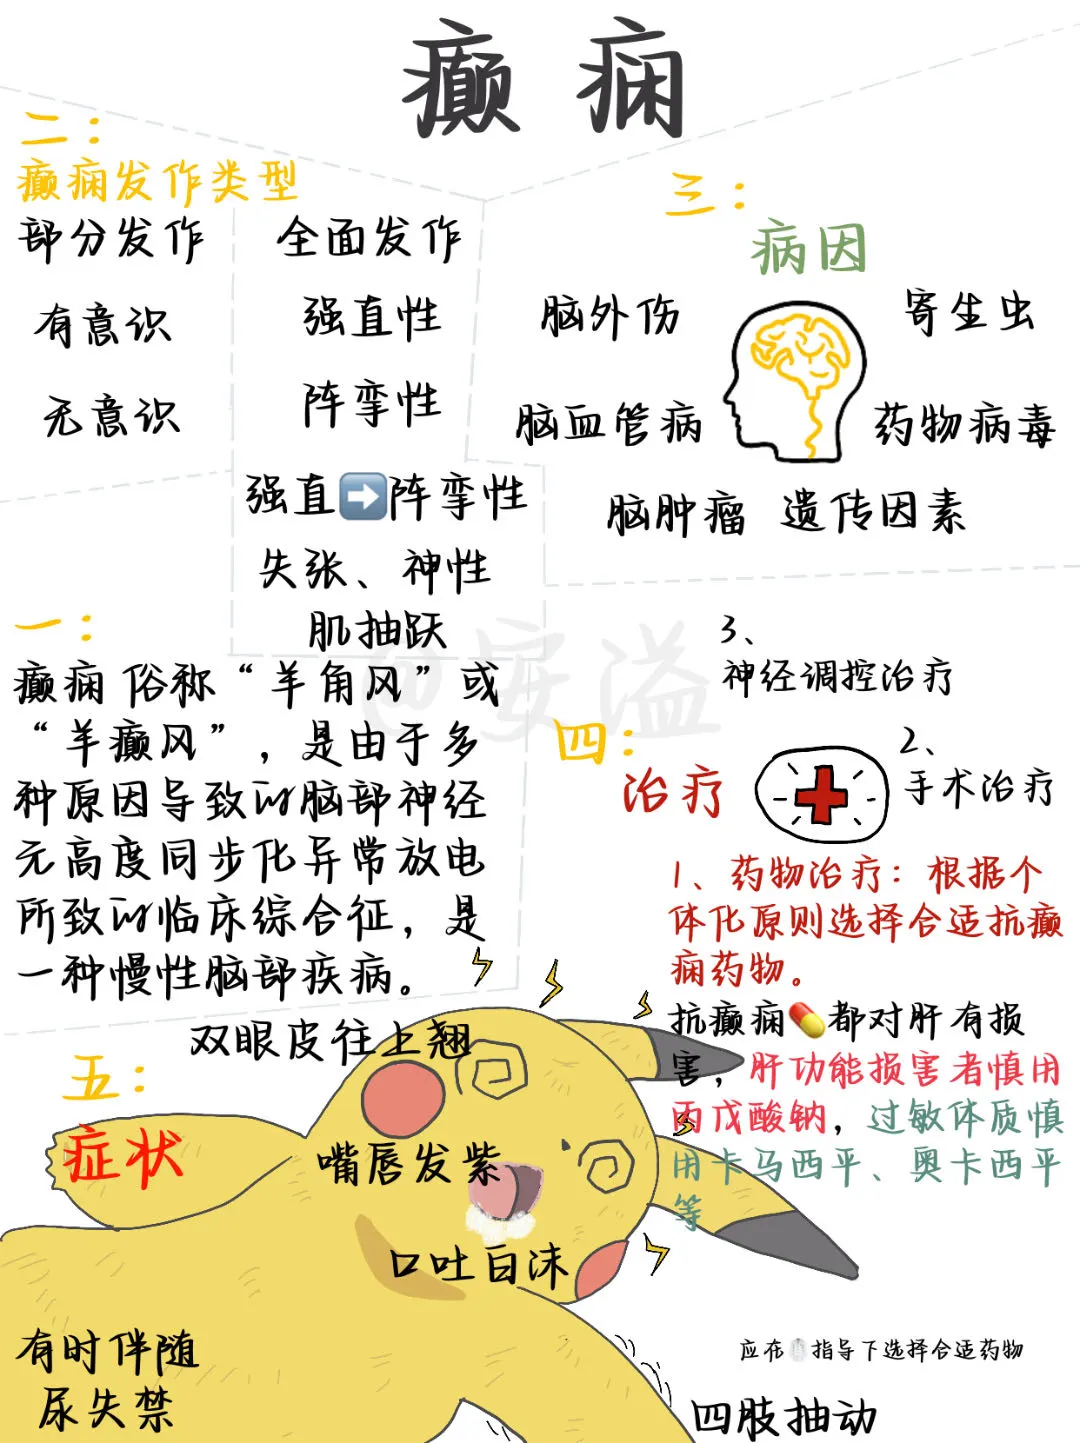 癫痫
二：
癫痫发作类型
部分发作
有意识
无意识
全面发作
强直性
阵挛性
强直➡️阵挛性
失张、神性
肌抽跃
三：
病因
脑外伤
寄生虫
脑血管病
药物病毒
脑肿瘤 遗传因素
一：
癫痫俗称“羊角风”或
“羊癫风”，是由于多
种原因导致的脑部神经
元高度同步化异常放电
所致的临床综合征，是
一种慢性脑部疾病。
@安溢
四：
治疗
3、
神经调控治疗
2、
手术治疗
1、药物治疗：根据个
体化原则选择合适抗癫
痫药物。
抗癫痫💊都对肝有损
害，肝功能损害者慎用
丙戊酸钠，过敏体质慎
用卡马西平、奥卡西平
等
五：
症状
双眼皮往上翘
嘴唇发紫
口吐白沫
有时伴随
尿失禁
四肢抽动
应在指导下选择合适药物